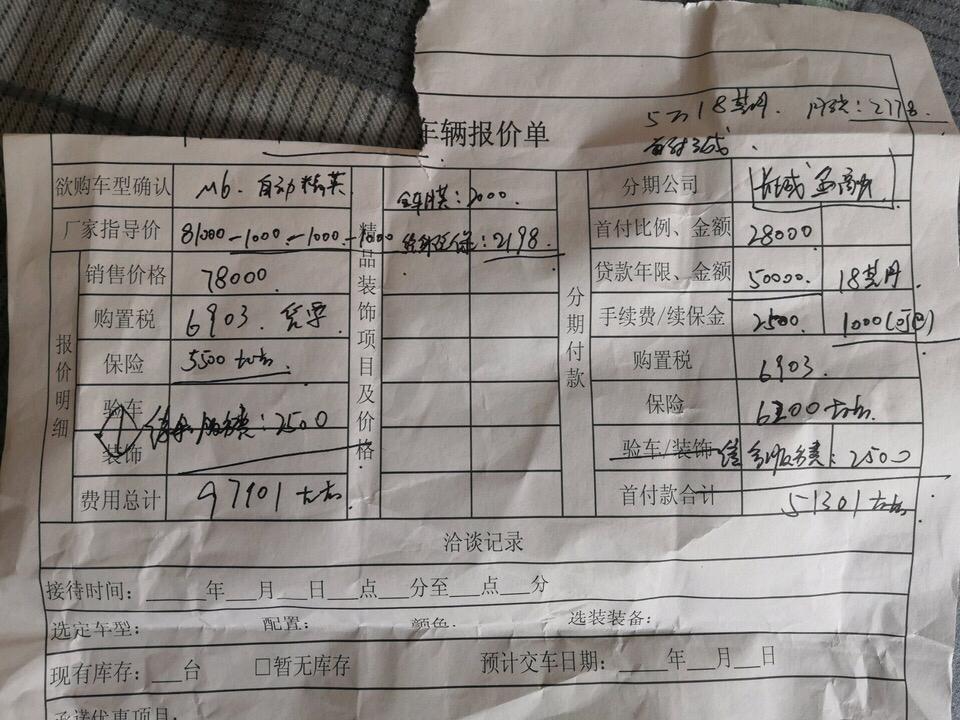 5万 18期 月供：2778
首付
车辆报价单
欲购车型确认 M6. 自动精英 全车 ：2000 分期公司 长城
厂家指导价 81000-1000-1000-1000 ：2198 首付比例、金额 28000
销售价格 78000 贷款年限、金额 50000 18期
购置税 6903. 手续费/续保金 2500 1000(可退)
报价明细 保险 5500左右 精品装饰项目及价格 分期付款 购置税 6903.
验车 服务费：2500 保险 6200左右
装饰 验车/装饰 服务费：2500
费用总计 97901左右 首付款合计 51301左右
洽谈记录
接待时间：____年__月__日__点__分至__点__分
选定车型： 配置： 颜色： 选装装备：
现有库存：__台 □暂无库存 预计交车日期：____年__月__日
承诺优惠项目：